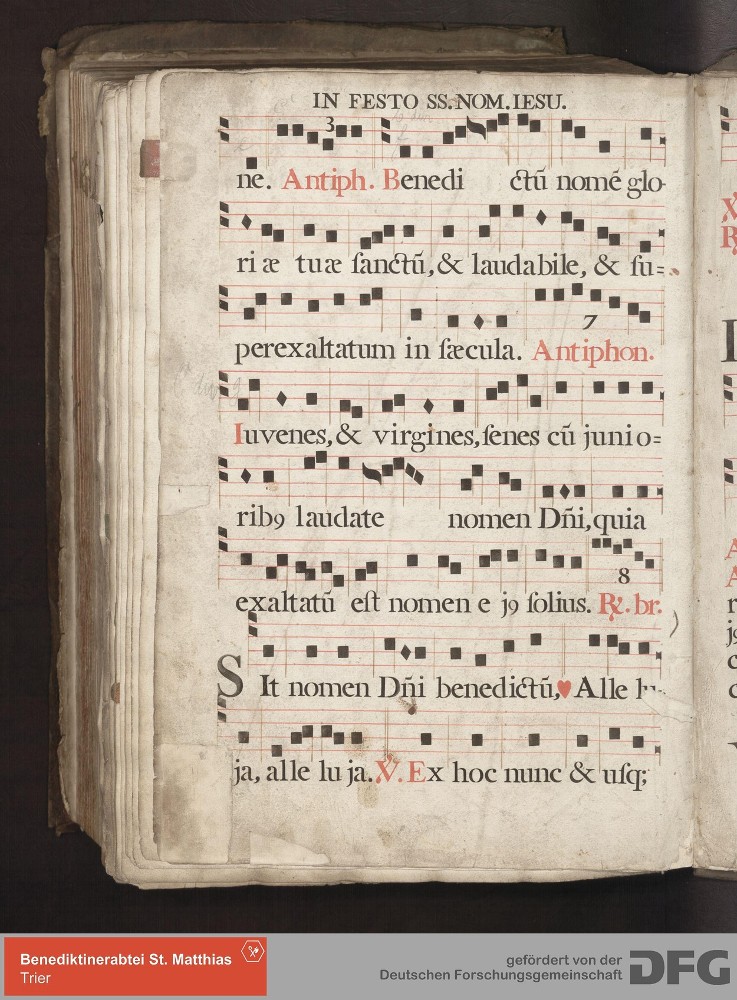 IN FESTO SS. NOM. IESU.
3
ne. Antiph. Benedi ctū nomē glo-
ri æ tuæ ſanctū, & laudabile, & ſu=
7
perexaltatum in ſæcula. Antiphon.
Iuvenes, & virgines, ſenes cū junio=
rib9 laudate nomen Dñi, quia
8
exaltatū eſt nomen e j9 ſolius. ℟. br.
SIt nomen Dñi benedictū,♥ Alle lu-
ja, alle lu ja. ℣. Ex hoc nunc & uſq;
Benediktinerabtei St. Matthias
Trier
gefördert von der
Deutschen Forschungsgemeinschaft
DFG